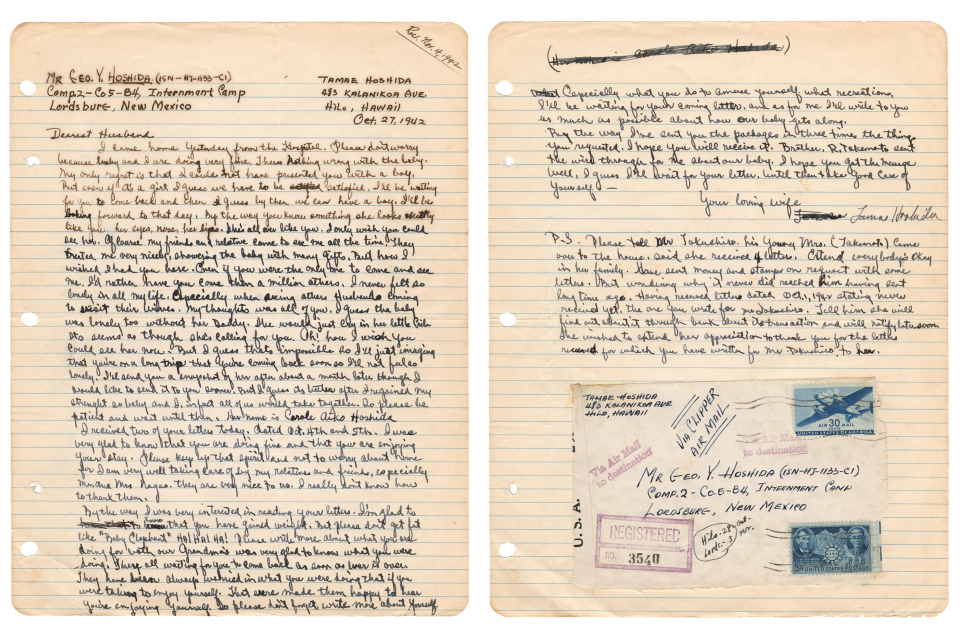 Rec. Nov. 4, 1942
MR GEO. Y. HOSHIDA (ISN-HJ-1133-C1)
Comp. 2 - Co 5 - B4, Internment Camp
Lordsburg, New Mexico
TAMAE HOSHIDA
483 KALANIKOA AVE.
HILO, HAWAII
Oct. 27, 1942
Dearest Husband
I came home Yesturday from the Hospital. Please don't worry
because baby and I are doing very fine. Theres nothing wrong with the baby.
My only regret is that I could not have presented you with a boy.
But even if its a girl I guess we have to be satisfied. I'll be waiting
for you to come back and then I guess by then we can have a boy. I'll be
looking forward to that day. By the way you know something she looks exactly
like you. her eyes, nose, her lips. She's all over like you. I only wish you could
see her. Of course my friends and relative came to see me all the time. They
treated me very nicely, showering the baby with many gifts. But how I
wished I had you here. Even if you were the only one to come and see
me, I'd rather have you come than a million others. I never felt so
lonely in all my life. Especially when seeing other Husbands coming
to visit their wives. My thoughts was all of you. I guess the baby
was lonely too without her Daddy. She would just cry in her little crib
Its seems as though she's calling for you. Oh! how I wish you
could see her now. But I guess thats impossible so I'll just imaging
that you're on a long trip that you're coming back soon so I'll not feel so
lonely. I'll send you a snapshot of her after about a month later though I
would like to send it to you sooner. But I guess its better after I regained my
strenght so baby and I, in fact all of us would take together. So please be
patient and wait until then. Her name is Carole Aiko Hoshida.
I received two of your letters today. dated Oct. 4th and 5th. I was
very glad to know that you are doing fine and that you are enjoying
your stay. Please keep up that spirit and not to worry about home
for I am very well taking care of by my relatives and friends, especially
Mr and Mrs Nagao. they are very nice to us. I really don't know how
to thank them.
By the way I was very interested in reading your letters. I'm glad to
know that you have gained weight. But please don't get fat
like "Baby Elephant" HA! HA! HA! Please write more about what you are
doing for both our Grandma's was very glad to know what you were
doing. These all waiting for you to come back as soon as war is over.
They have been always worried in what you were doing that if you
were taking to enjoy yourself. That were made them happy to hear
you're enjoying yourself. So please don't forget, write more about yourself
(Carole Aiko Hoshida)
Especially what you do to amuse yourself, what recreations,
I'll be waiting for your coming letter, and as for me I'll write to you
as much as possible about how our baby gets along.
By the way I've sent you the packages in three times the thing
you requested. I hope you will receive it. Brother, R. Takemoto sent
the wire through for me about our baby. I hope you got the message
Well, I guess I'll wait for your letter. Until then take Good Care of
yourself —
Your loving wife
Tamae Hoshida
P.S. Please tell Mr Tokushiro, his Young Mrs. (Takemoto) came
over to the house. said she received 4 letter. Extend everybody's Okay
in her family. Have sent money and stamps on request with some
letters. But wondering why it never did reached him having sent
long time ago. Having received letter dated Oct. 1, 1942 stating never
received yet. the one you wrote for Mr Tokushiro. Tell him she will
find out about it through bank about its transaction and will notify later soon.
She wished to extend her appreciation to thank you for the letters
received for which you have written for Mr Tokushiro to her.
TAMAE HOSHIDA
483 KALANIKOA AVE
HILO, HAWAII
VIA CLIPPER
AIR MAIL
AIR 30 MAIL
UNITED STATES OF AMERICA
Via Air Mail
to destination
Via Air Mail
to destination
MR GEO. Y. HOSHIDA (ISN-HJ-1133-C1)
COMP. 2 - CO. 5 - B4, INTERNMENT CAMP
LORDSBURG, NEW MEXICO
U.S.A.
REGISTERED
NO. 3540
Hilo - 28 Oct.
Lords. - 3 Nov.
5¢ UNITED STATES POSTAGE